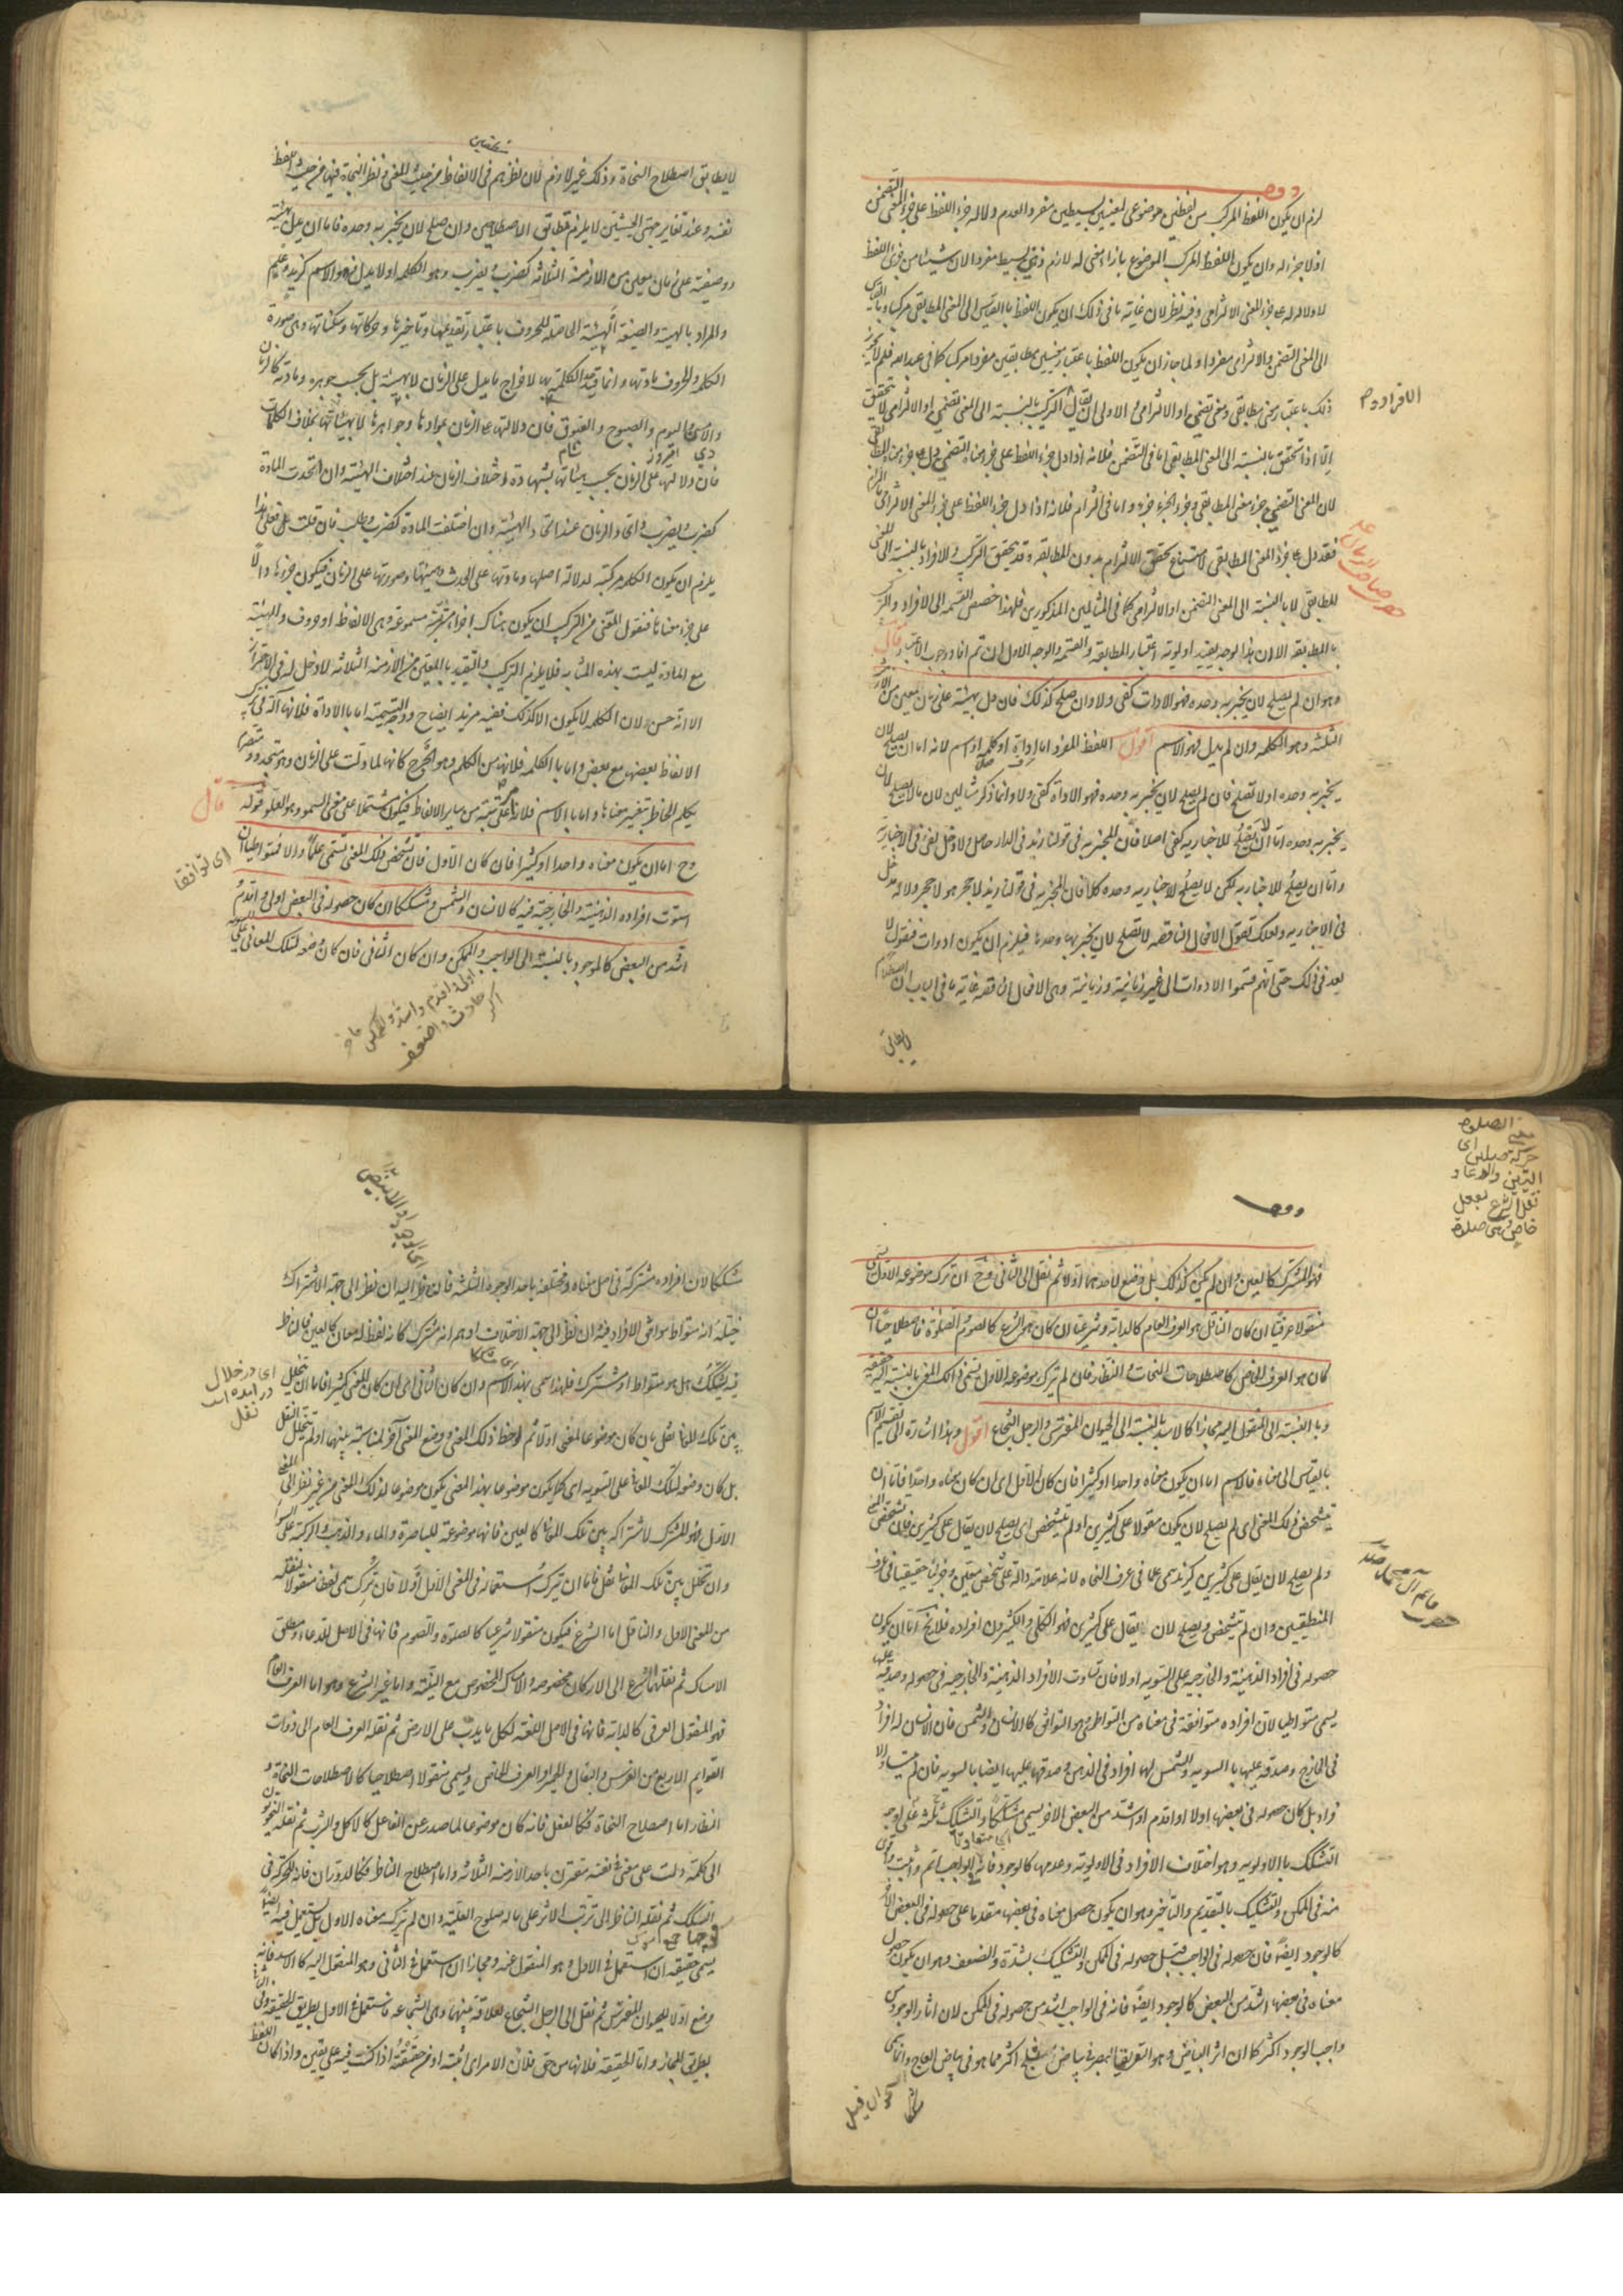 لزم ان يكون اللفظ المركب من لفظين موضوعين لمعنيين بسيطين مفردا لعدم دلالة جزء اللفظ على جزء المعنى التضمنى
اذ لا جزء له وان يكون اللفظ المركب الموضوع بازاء معنى له لازم ذهنى بسيط مفردا لان شيئا من جزئى اللفظ
لا دلالة له على جزء المعنى الالتزامى وفيه نظر لان غاية ما فى ذلك ان يكون اللفظ بالقياس الى المعنى المطابقى مركبا وبالقياس
الى المعنى التضمنى والالتزامى مفردا ولما جاز ان يكون اللفظ باعتبار معنيين مطابقين مفردا ومركبا كما فى عبد الله فلم لا يجوز
ذلك باعتبار معنى مطابقى ومعنى تضمنى او الالتزامى والاولى ان يقال التركيب بالنسبة الى المعنى التضمنى او الالتزامى لا يتحقق
الا اذا تحقق بالنسبة الى المعنى المطابقى اما فى التضمن فلانه اذا دل جزء اللفظ على جزء معناه التضمنى دل على جزء معناه المطابقى
لان المعنى التضمنى جزء معنى المطابقى وجزء الجزء جزء واما فى التزام فلانه اذا دل جزء اللفظ على جزء المعنى الالتزامى بالالتزام
فقد دل على جزء المعنى المطابقى لامتناع تحقق الالتزام بدون المطابقة وقد يتحقق التركيب والافراد بالنسبة الى المعنى
المطابقى لا بالنسبة الى المعنى التضمنى او الالتزامى كما فى المثالين المذكورين فلهذا خصص القسمة الى الافراد والتركيب
بالمطابقة الا ان هذا الوجه يفيد اولوية اعتبار المطابقة فى القسمة والوجه الاول ان تم افاد وجوب الاعتبار قال
وهو ان لم يصلح لان يخبر به وحده فهو الادات كفى ولا وان صلح كذلك فان دل بهيئته على زمان معين من الازمنة
الثلثة فهو الكلمة وان لم يدل فهو الاسم اقول اللفظ المفرد اما اداة او كلمة او اسم لانه اما ان يصلح لان
يخبر به وحده او لا يصلح فان لم يصلح لان يخبر به وحده فهو الاداة كفى ولا وانما ذكر مثالين لان ما لا يصلح لان
يخبر به وحده اما ان لا يصلح للاخبار به كفى اصلا فان المخبر به فى قولنا زيد فى الدار حاصل ولا دخل لفى فى الاخبار به
واما ان يصلح للاخبار به لكن لا يصلح للاخبار به وحده كلا فان المخبر به فى قولنا زيد لا حجر هو لا حجر ولا له مدخل
فى الاخبار به ولعلك تقول الافعال الناقصة لا تصلح لان يخبر بها وحدها فيلزم ان يكون ادوات فنقول لا
بعد فى ذلك حتى انهم قسموا الادوات الى غير زمانية وزمانية وهى الافعال الناقصة غاية ما فى الباب ان اصطلاحهم
لا يطابق
لا يطابق اصطلاح النحاة وذلك غير لازم لان نظرهم فى الالفاظ من حيث المعنى ونظر النحاة فيها من حيث اللفظ
نفسه وعند تغاير جهتى الحيثيتين لا يلزم تطابق الاصطلاحين وان صلح لان يخبر به وحده فاما ان يدل بهيئته
وصيغته على زمان معين من الازمنة الثلاثة كضرب ويضرب وهو الكلمة او لا يدل فهو الاسم كزيد وعلم
والمراد بالهيئة والصيغة الهيئة الحاصلة للحروف باعتبار تقديمها وتاخيرها وحركاتها وسكناتها وهى صورة
الكلمة والحروف مادتها وانما قيد الكلمة بها لاخراج ما يدل على الزمان لا بهيئته بل بحسب جوهره ومادته كالزمان
والامس واليوم والصبوح والغبوق فان دلالتها على الزمان بموادها وجواهرها لا بهيئاتها بخلاف الكلمات
دى امروز شام
فان دلالتها على الزمان بحسب هيئاتها بشهادة اختلاف الزمان عند اختلاف الهيئة وان اتحدت المادة
كضرب ويضرب واتحاد الزمان عند اتحاد الهيئة وان اختلفت المادة كضرب وطلب فان قلت على هذا
يلزم ان يكون الكلمة مركبة لدلالة اصلها ومادتها على الحدث وهيئتها وصورتها على الزمان فيكون جزءها دالا
على جزء معناها فنقول المعنى من التركيب ان يكون هناك اجزاء مترتبة مسموعة وهى الالفاظ او حروف والهيئة
مع المادة ليست بهذه المثابة فلا يلزم التركيب والتقييد بالمعين من الازمنة الثلاثة لا دخل له فى الاحتراز
الا انه حسن لان الكلمة لا يكون الا كذلك ففيه مزيد ايضاح ووجه التسمية اما بالاداة فلانها آلة فى تركيب
الالفاظ بعضها مع بعض واما بالكلمة فلانها من الكلم وهو الجرح كانها لما دلت على الزمان وهو متجدد ومتصرم
يكلم الخاطر بتغير معناها واما بالاسم فلانه اعلى مرتبة من سائر الالفاظ فيكون مشتملا على معنى السمو وهو العلو قوله قال
وح اما ان يكون معناه واحدا او كثيرا فان كان الاول فان تشخص ذلك المعنى يسمى علما والا فمتواطيا ان
اى توافقا
استوت افراده الذهنية والخارجية فيه كالانسان والشمس ومشككا ان كان حصوله فى البعض اولى واقدم
اشد من البعض كالموجود بالنسبة الى الواجب والممكن وان كان الثانى فان كان وضعه لتلك المعانى على السوية
معنى الصلوة
حركة صلاى
نقل الشرع بفعل
خاص وهى صلوة
فهو المشترك كالعين وان لم يكن كذلك بل وضع لاحدهما اولا ثم نقل الى الثانى وح ان ترك موضوعه الاول يسمى
منقولا عرفيا ان كان الناقل هو العرف العام كالدابة وشرعيا ان كان هو الشرع كالصوم والصلوة واصطلاحيا ان
كان هو العرف الخاص كاصطلاحات النحات والنظار فان لم يترك موضوعه الاول يسمى ذلك المعنى بالنسبة اليه حقيقة
وبالنسبة الى المنقول اليه مجازا كالاسد بالنسبة الى الحيوان المفترس والرجل الشجاع اقول وهذا اشارة الى تقسيم الاسم
بالقياس الى معناه فالاسم اما ان يكون معناه واحدا او كثيرا فان كان الاول اى ان كان معناه واحدا فاما ان
يتشخص ذلك المعنى اى لم يصلح لان يكون مقولا على كثيرين او لم يتشخص اى يصلح لان يقال على كثيرين فان تشخص المعنى
ولم يصلح لان يقال على كثيرين كزيد يسمى علما فى عرف النحاة لانه علامة دالة على شخص معين وجزئيا حقيقيا فى عرف
المنطقيين وان لم يتشخص ويصلح لان يقال على كثيرين فهو الكلى والكثيرون افراده فلا يخ اما ان يكون
حصوله فى افراد الذهنية والخارجية على السوية اولا فان تساوت الافراد الذهنية والخارجية فى حصوله وصدقه عليها
يسمى متواطيا لان افراده متوافقة فى معناه من التواطى وهو التوافق كالانسان والشمس فان الانسان له افراد
فى الخارج وصدقه عليها بالسوية والشمس لها افراد فى الذهن وصدقها عليها ايضا بالسوية فان لم يتساو الا
فراد بل كان حصوله فى بعضها اولا او اقدم او اشد من البعض الاخر يسمى مشككا والتشكيك ثلثة على اوجه
التشكيك بالاولوية وهو اختلاف الافراد فى الاولوية وعدمها كالوجود فانه فى الواجب اتم واثبت واقوى
منه فى الممكن والتشكيك بالتقديم والتاخير وهو ان يكون حصول معناه فى بعضها متقدما على حصوله فى البعض الآخر
كالوجود ايضا فان حصوله فى الواجب قبل حصوله فى الممكن والتشكيك بشدة والضعف وهو ان يكون حصول
معناه فى بعضها اشد من البعض كالوجود ايضا فانه فى الواجب اشد من حصوله فى الممكن لان اثار الوجود من
واجب الوجود اكثر كما ان اثر البياض وهو التفريق البصر فى بياض الثلج اكثر مما هو فى بياض العاج وانما سمى
مشككا لان افراده مشتركة فى اصل معناه ومختلفة باحد الوجوه الثلثة فالناظر اليه ان نظر الى جهة الاشتراك
خيله انه متواط لتوافق الافراد فيه وان نظر الى جهة الاختلاف اوهم انه مشترك كانه لفظ له معان كالعين فالناظر
فيه يتشكك هل هو متواط او مشترك فلهذا سمى بهذا الاسم وان كان الثانى اى ان كان المعنى كثيرا فاما ان يتخلل
اى در خلال در آمده است نقل
بين تلك المعانى نقل بان كان موضوعا لمعنى اولا ثم لوحظ ذلك المعنى ووضع لمعنى آخر لمناسبة بينهما او لم يتخلل النقل
بل كان وضعه لتلك المعانى على السوية اى كما يكون موضوعا بهذا المعنى يكون موضوعا لذلك المعنى من غير نظر الى المعنى
الاول فهو المشترك لاشتراكه بين تلك المعانى كالعين فانها موضوعة للباصرة والماء والذهب والركبة على السواء
وان تخلل بين تلك المعانى نقل فاما ان يترك استعماله فى المعنى الاول اولا فان ترك سمى لفظا منقولا لنقله
من المعنى الاول والناقل اما الشرع فيكون منقولا شرعيا كالصلوة والصوم فانها فى الاصل للدعاء ومطلق
الامساك ثم نقلها الشرع الى الاركان مخصوصة والامساك المخصوص مع النية واما غير الشرع وهو اما العرف العام
فهو المنقول العرفى كالدابة فانها فى الاصل اللغة لكل ما يدب على الارض ثم نقله العرف العام الى ذوات
القوايم الاربع من الفرس والبغال والحمير او العرف الخاص ويسمى منقولا اصطلاحيا كالاصطلاحات النحاة و
النظار اما اصطلاح النحاة فكالفعل فانه كان موضوعا لما صدر عن الفاعل كالاكل والشرب ثم نقله النحويون
الى كلمة دلت على معنى فى نفسه مقترن باحد الازمنة الثلاثة واما اصطلاح النظار فكالدوران فانه للحركة فى
السكك ثم نقله النظار الى ترتب الاثر على ما له صلوح العلية وان لم يترك معناه الاول بل يستعمل فيه ايضا
يسمى حقيقة ان استعمل فى الاول وهو المنقول عنه ومجازا ان استعمل فى الثانى وهو المنقول اليه كالاسد فانه
وضع اولا للحيوان المفترس ثم نقل الى الرجل الشجاع لعلاقة بينهما وهى الشجاعة فاستعمل فى الاول بطريق الحقيقة وفى الثانى
بطريق المجاز واما الحقيقة فلانها من حق فلان الامر اى اثبته او من حققته اذا كنت فيه على يقين واذا كان اللفظ